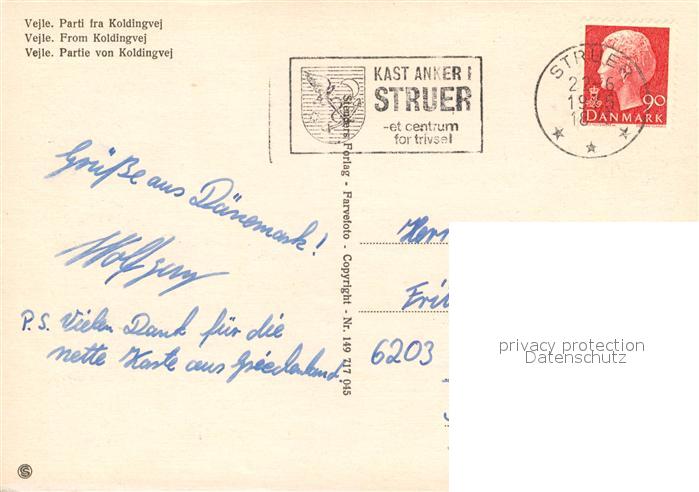 Vejle. Parti fra Koldingvej
Vejle. From Koldingvej
Vejle. Partie von Koldingvej
KAST ANKER I
STRUER
-et centrum
for trivsel
STRUER
90
DANMARK
Grüße aus Dänemark!
Wolfgang
P.S. Vielen Dank für die
nette Karte aus Griechenland.
Stenders Forlag - Farvefoto - Copyright - Nr. 149 717 045
Herr
6203
privacy protection
Datenschutz